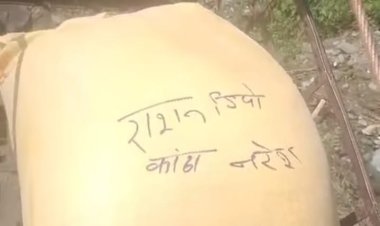 राशन डिपो
कांढा नरेश